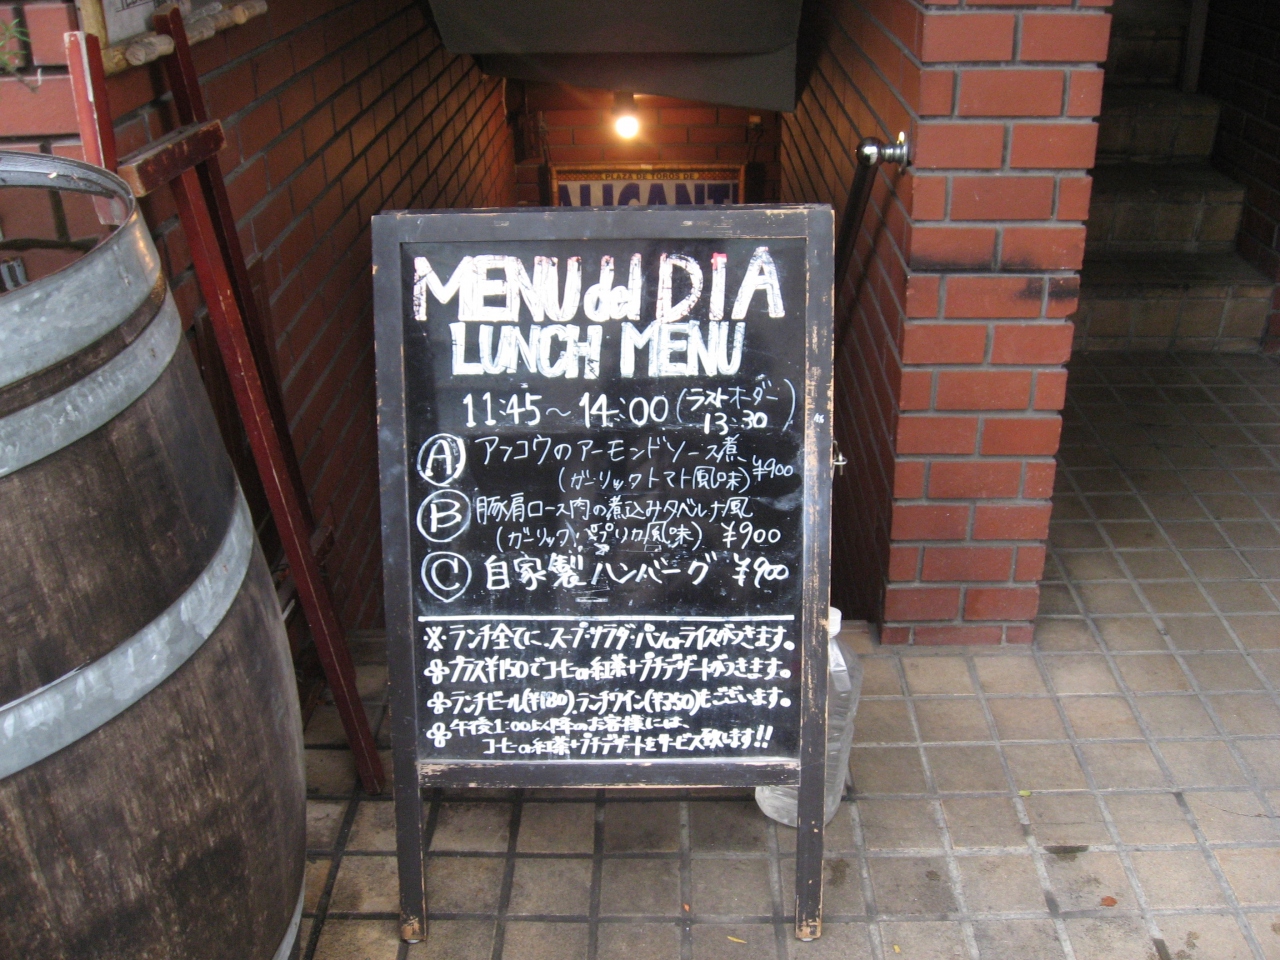 PLAZA DE TOROS DE
ALICANT
MENU del DIA
LUNCH MENU
11:45～14:00(ラストオーダー
13:30)
Ⓐ アンコウのアーモンドソース煮
(ガーリックトマト風味)¥900
Ⓑ 豚肩ロース肉の煮込みタベルナ風
(ガーリック・パプリカ風味) ¥900
Ⓒ 自家製ハンバーグ ¥900
※ランチ全てに、スープ・サラダ・パンorライスがつきます。
プラス¥150でコーヒーor紅茶+プチデザートがつきます。
ランチビール(¥180)、ランチワイン(¥350)もございます。
午後1:00より以降のお客様には、
コーヒーor紅茶+プチデザートをサービス致します!!